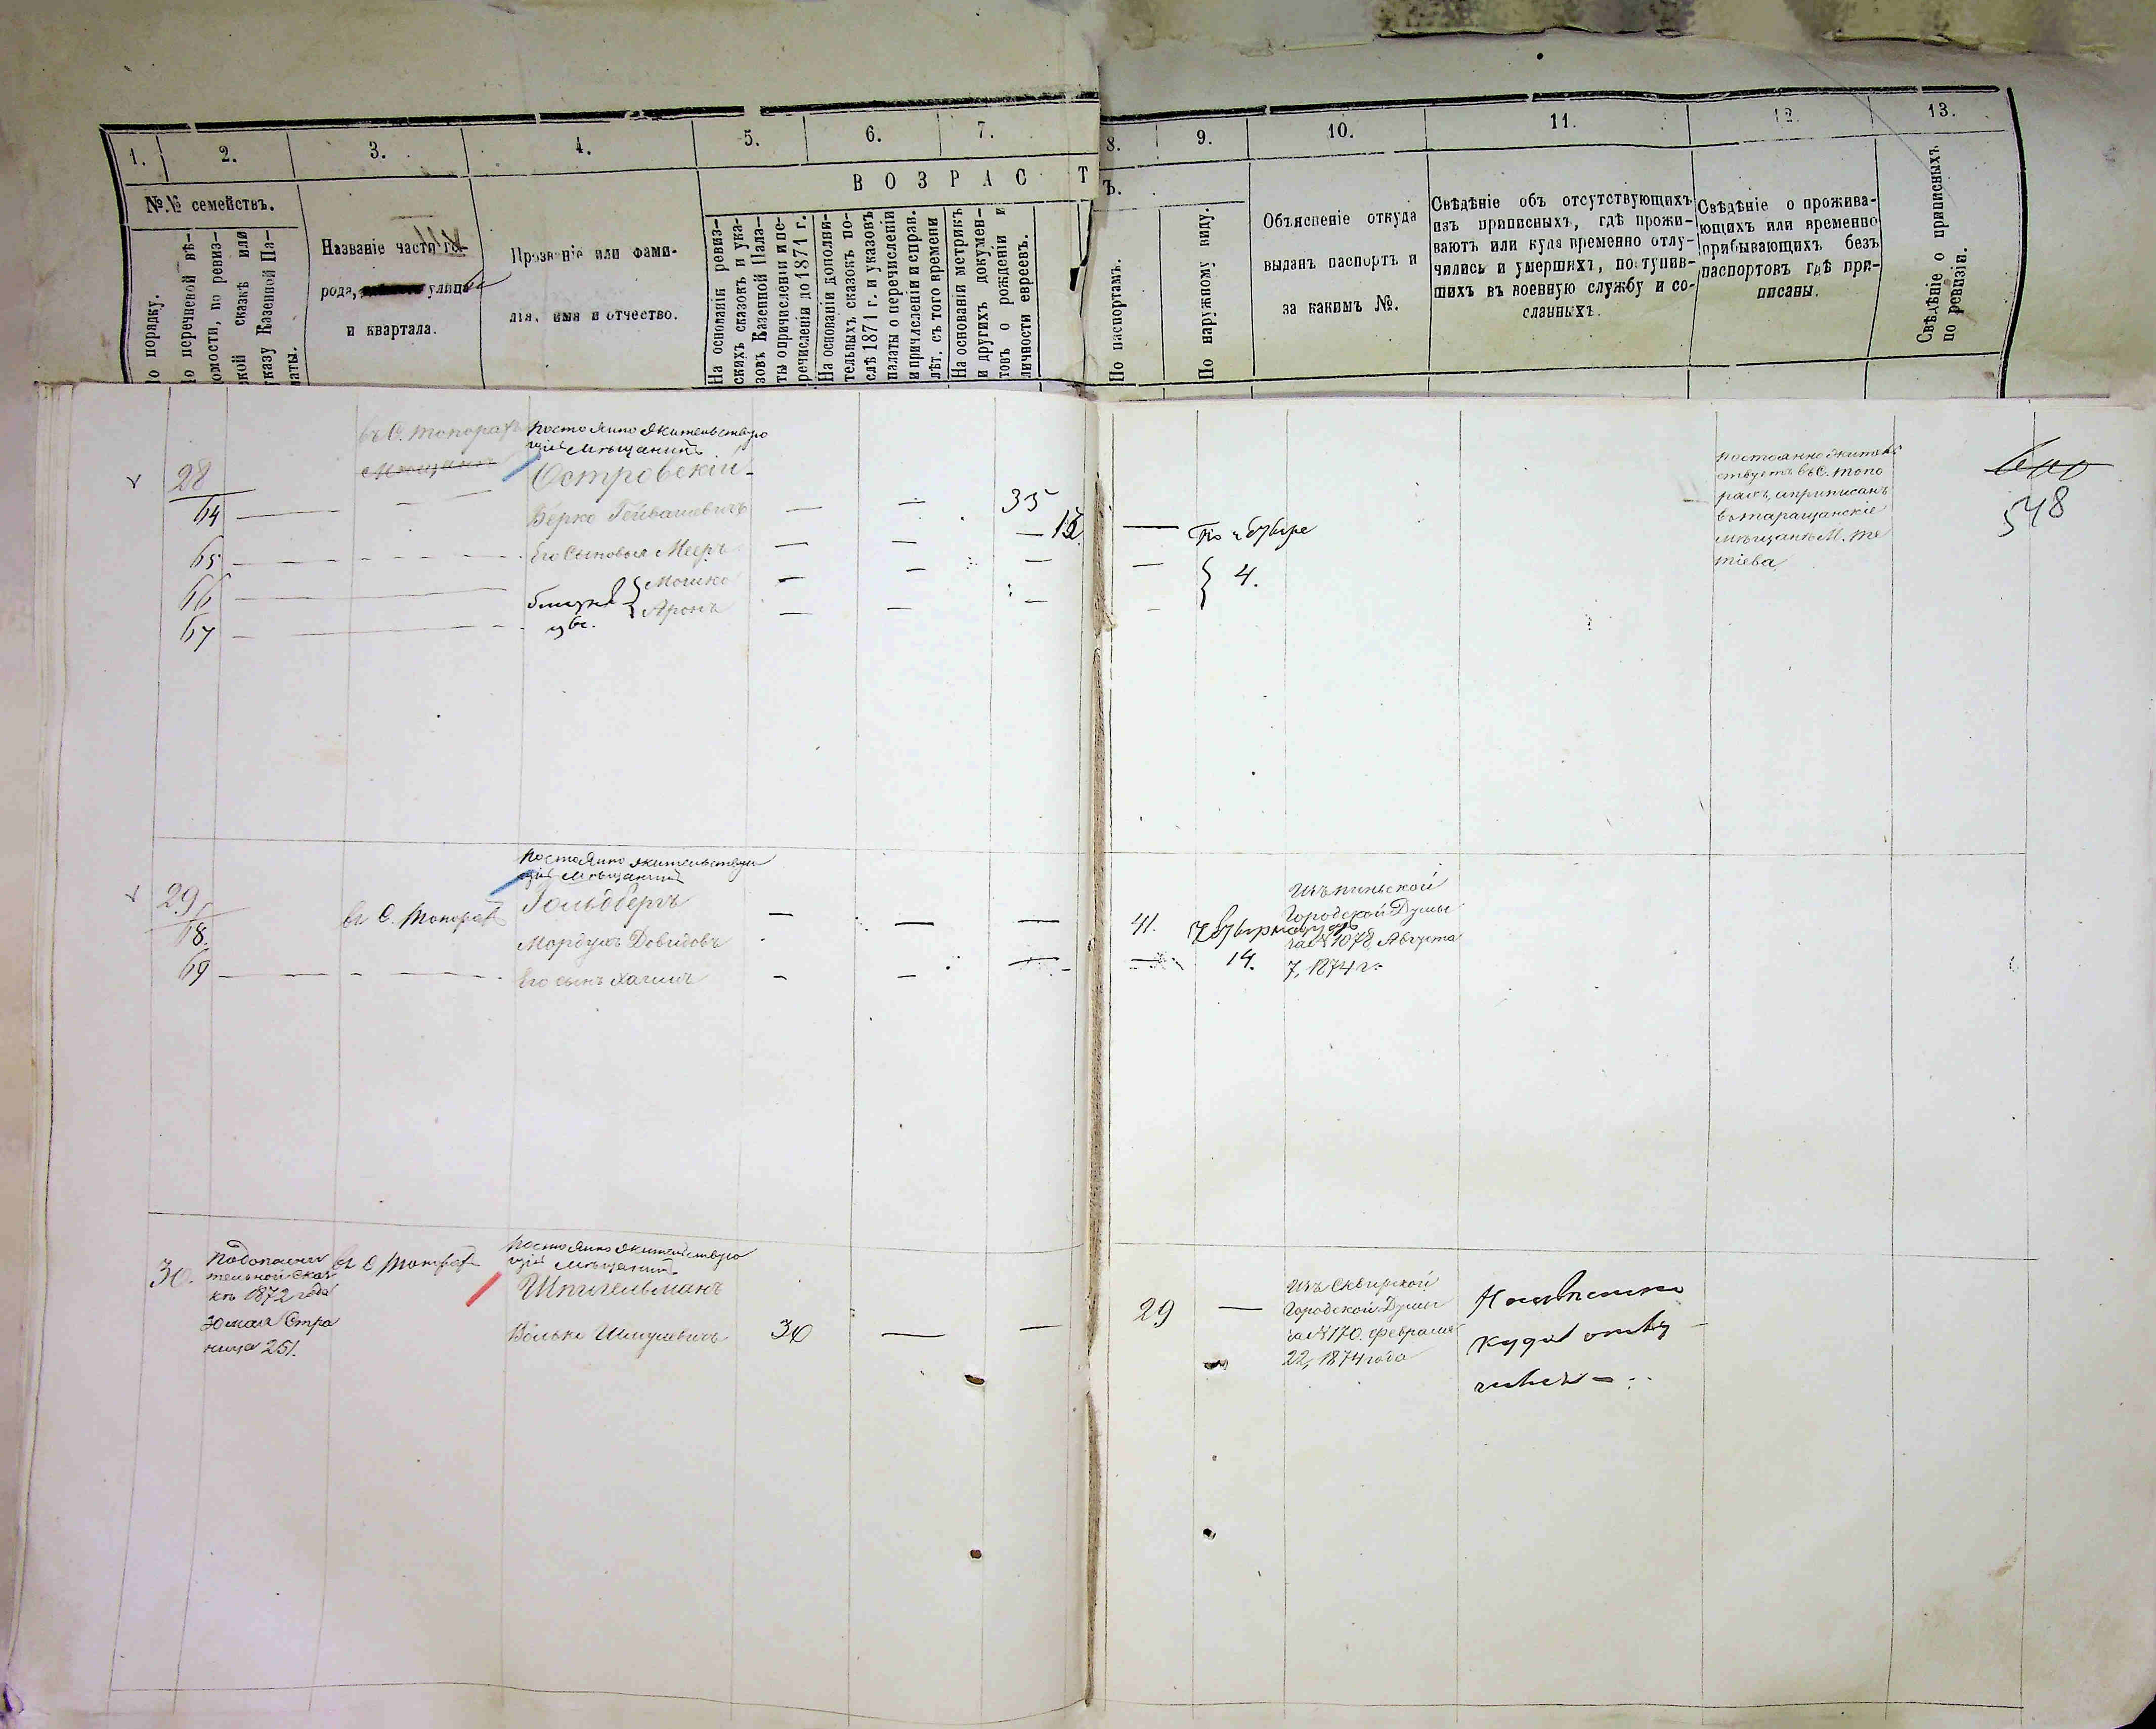 1. 2. 3. 4. 5. 6. 7. 8. 9. 10. 11. 12. 13.
№.№ семействъ.
В О З Р А С Т Ъ.
По порядку.
По перечневой вѣ-
домости, по ревиз-
ской сказкѣ или
указу Казенной Па-
латы.
Названіе части го-
рода, улицы
и квартала.
Прозваніе или фами-
лія, имя и отчество.
На основаніи ревиз-
скихъ сказокъ и ука-
зовъ Казенной Пала-
ты о причисленіи и пе-
речисленіи до 1871 г.
На основаніи дополни-
тельныхъ сказокъ по-
слѣ 1871 г. и указовъ
палаты о перечисленіи
и причисленіи и справ.
лѣт. съ того времени
На основаніи метрикъ
и другихъ докумен-
товъ о рожденіи и
личности евреевъ.
По паспортамъ.
По наружному виду.
Объясненіе откуда
выданъ паспортъ и
за какимъ №.
Свѣдѣніе объ отсутствующихъ
изъ приписныхъ, гдѣ прожи-
ваютъ или куда временно отлу-
чились и умершихъ, поступив-
шихъ въ военную службу и со-
сланныхъ.
Свѣдѣніе о прожива-
ющихъ или временно
прибывающихъ безъ
паспортовъ гдѣ при-
писаны.
Свѣдѣніе о приписныхъ
по ревизіи.
въ С. Топорахъ
Мѣщанъ
Постоянно жительствую
щій Мѣщанинъ
28
Островскій
64
Берко
35
65
Его Сыновья Мееръ
13
66
Мошко
4.
близнецы
67
Аронъ
постоянно жител
ствуетъ въ С. Топо
рахъ, а приписанъ
въ таращанскіе
мѣщане М. Те
тіева
548
Постоянно жительствую
щій Мѣщанинъ
29
Гольдбергъ
68.
въ С. Топорахъ
Мордухъ Довидовъ
41.
69
Его сынъ Хаимъ
14.
Городской Думы
за № 1078, Августа
7, 1874 г.
30.
Подополни
тельной сказ
кѣ 1872 года
30 мая Стра
ница 251.
въ С Топорахъ
Постоянно жительствую
щій Мѣщанинъ
Шпигельманъ
Волько Шмулевичъ
30
29
Изъ Сквирской
Городской Думы
за № 170. февраля
22, 1874 года
Неизвестно
куда отлу
чился